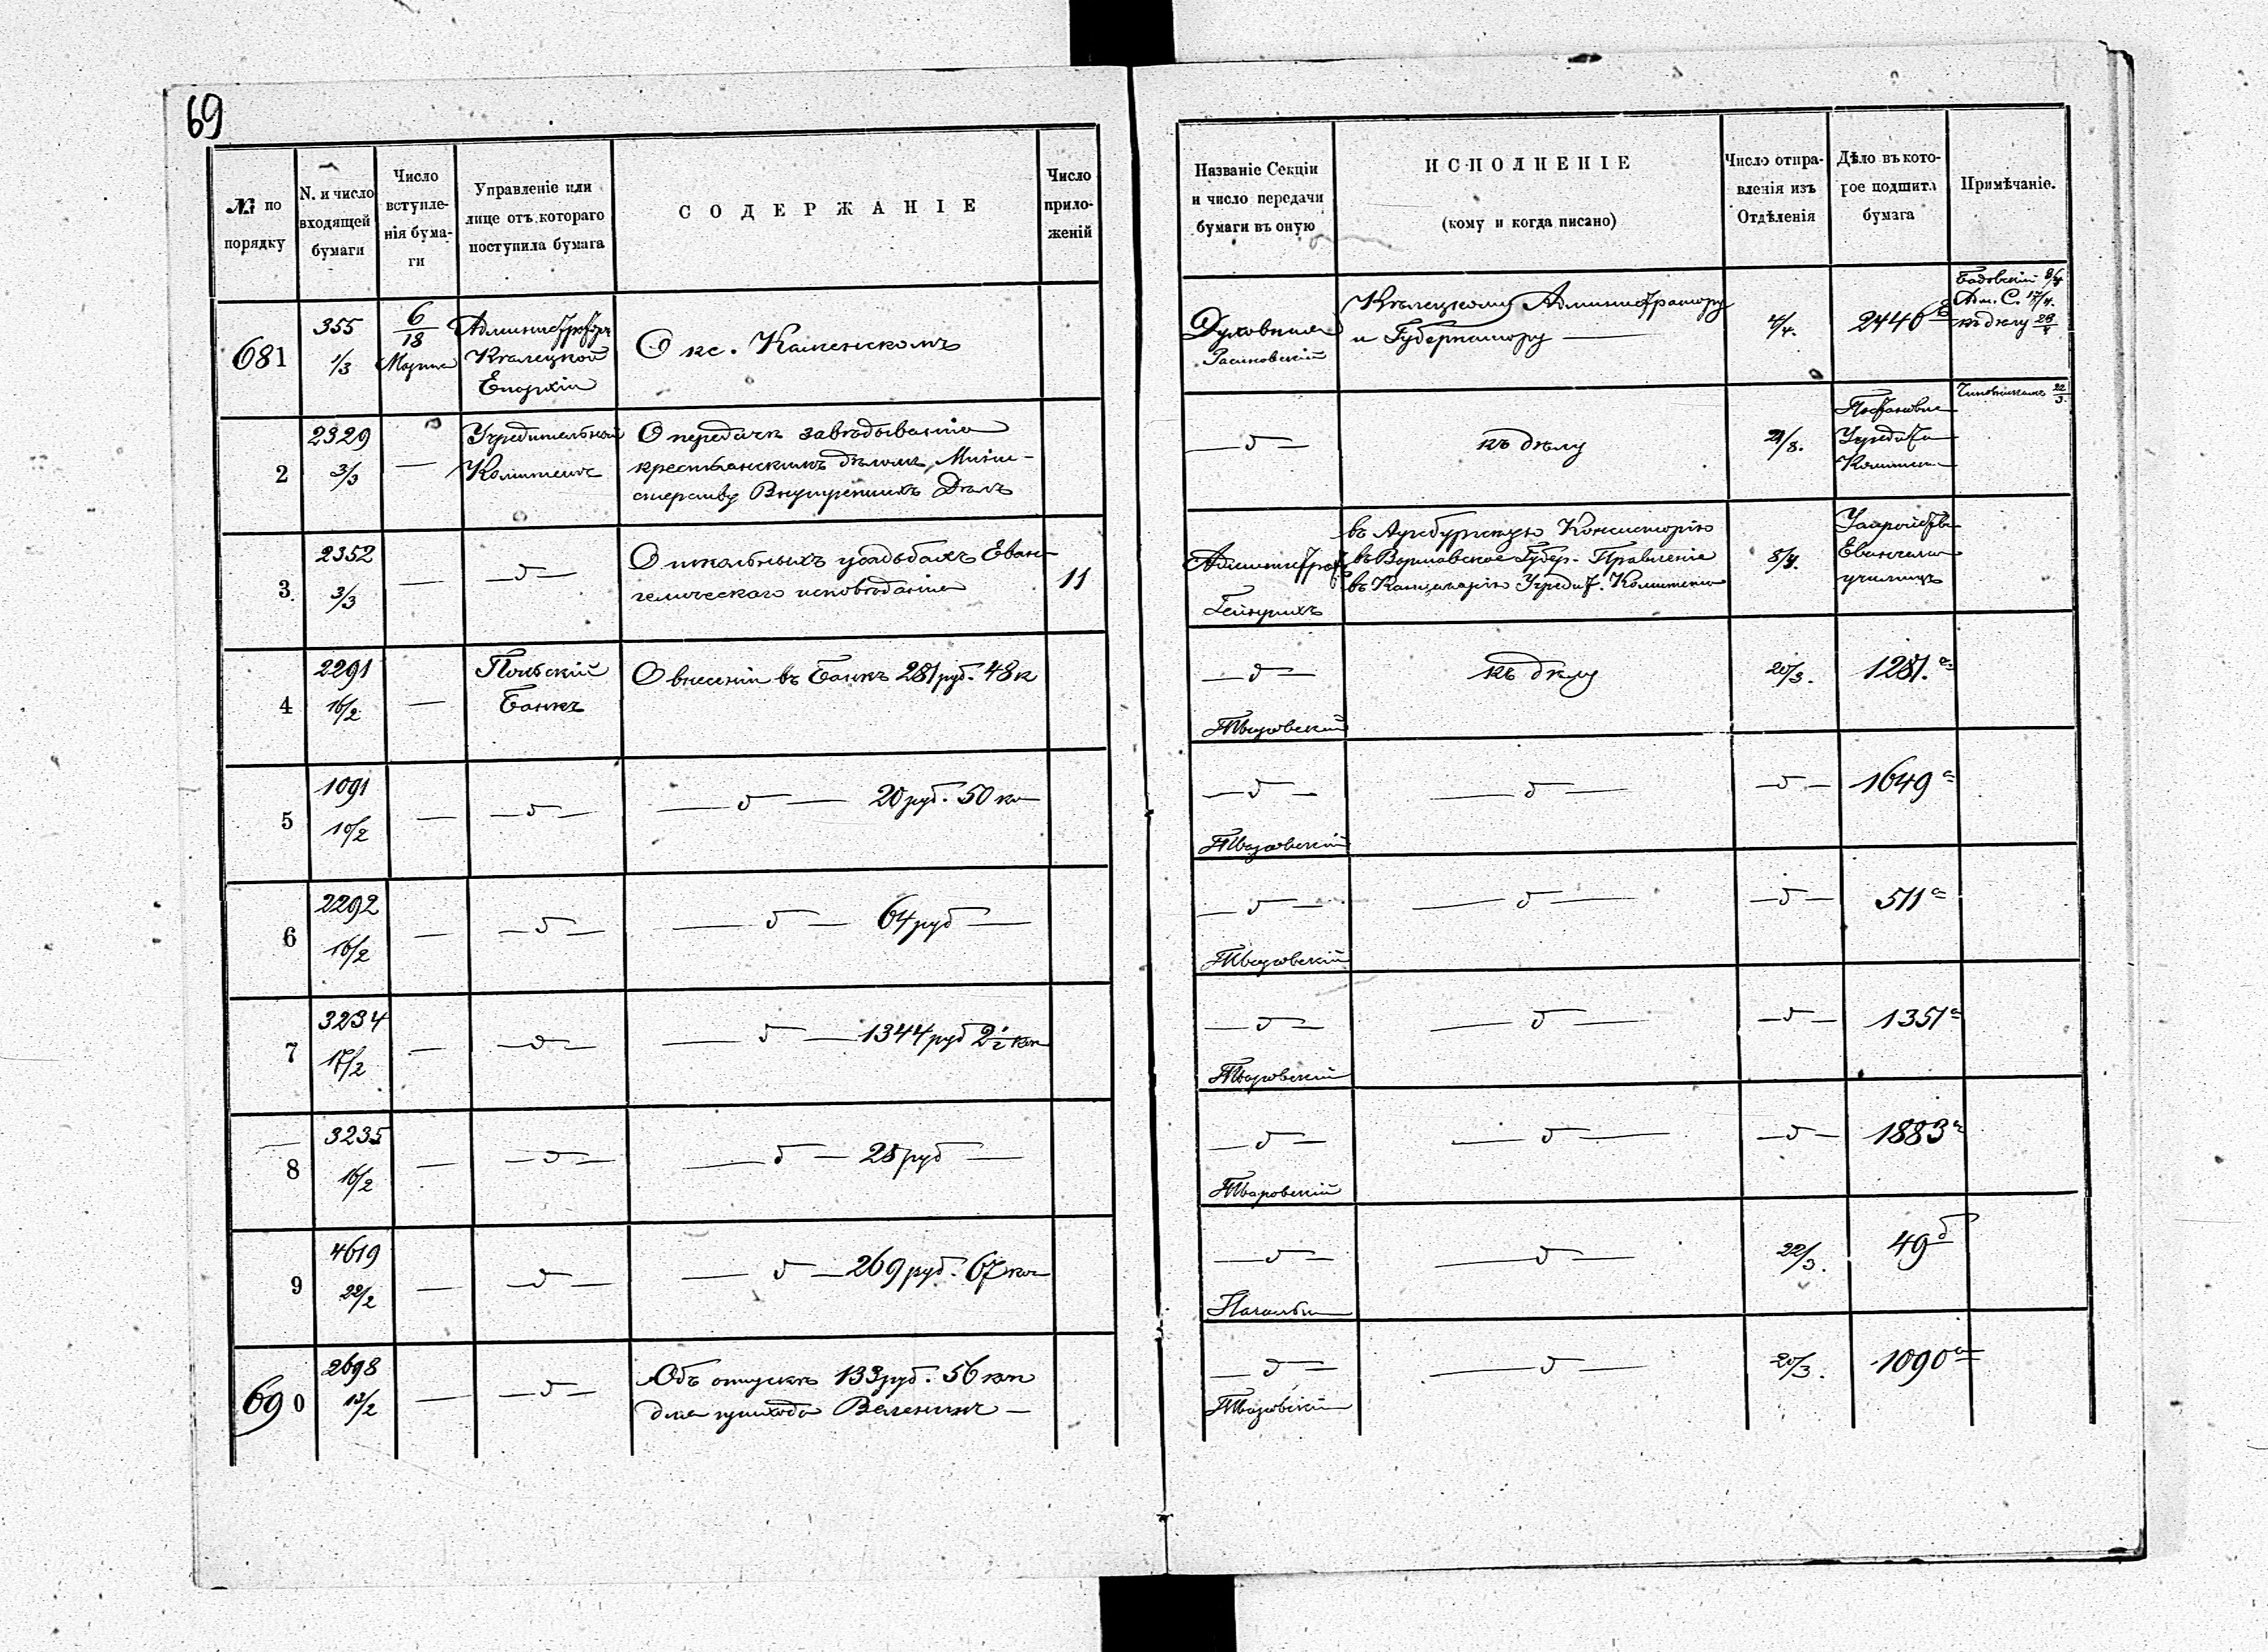 69
№ по порядку
N. и число входящей бумаги
Число вступле-нія бума-ги
Управленіе или лице отъ котораго поступила бумага
СОДЕРЖАНІЕ
Число прило-женій
Названіе Секціи и число передачи бумаги въ оную
ИСПОЛНЕНІЕ
(кому и когда писано)
Число отпра-вленія изъ Отдѣленія
Дѣло въ кото-рое подшита бумага
Примѣчаніе.
681
355
1/3
6/18
Марта
Администраторъ
Кѣлецкой
Епархіи
О кс. Каменскомъ
Духовная
Кѣлецкому Администратору
и Губернатору
4/4.
2446
Адм. С. 17/4.
къ дѣлу 28/4
2
2329
3/3
—
Учредительный
Комитетъ
О передачѣ завѣдыванія
крестьянскимъ дѣломъ Мини-
стерству Внутреннихъ Дѣлъ
— д —
къ дѣлу
21/3.
Постановле
Учредит
Комитета
22/3.
3
2352
3/3
—
— д —
О школьныхъ усадьбахъ Еван-
гелическаго исповѣданія
11
Администрат
Гейнрихъ
въ Аугсбургскую Консисторію
въ Варшавское Губер. Правленіе
въ Канцелярію Учредит. Комитета
8/4.
Устройство
Евангелич
училищъ
4
2291
16/2
—
Польскій
Банкъ
О внесеніи въ Банкъ 281 руб. 48 к
— д —
Тваровскій
къ дѣлу
20/3.
1281. а
5
1091
10/2
—
— д —
— д — 20 руб. 50 ко
— д —
Тваровскій
— д —
— д —
1649 а
6
2292
16/2
—
— д —
— д — 64 руб —
— д —
Тваровскій
— д —
— д —
511 а
7
3234
17/2
—
— д —
— д — 1344 руб 2½ коп
— д —
Тваровскій
— д —
— д —
1351 а
8
3235
16/2
—
— д —
— д — 28 руб —
— д —
Тваровскій
— д —
— д —
1883 а
9
4619
22/2
—
— д —
— д — 269 руб. 67 коп
— д —
— д —
22/3.
49 б
690
2698
13/2
—
— д —
Объ отпускѣ 133 руб. 56 коп
для прихода —
— д —
Тваровскій
— д —
20/3.
1090 а